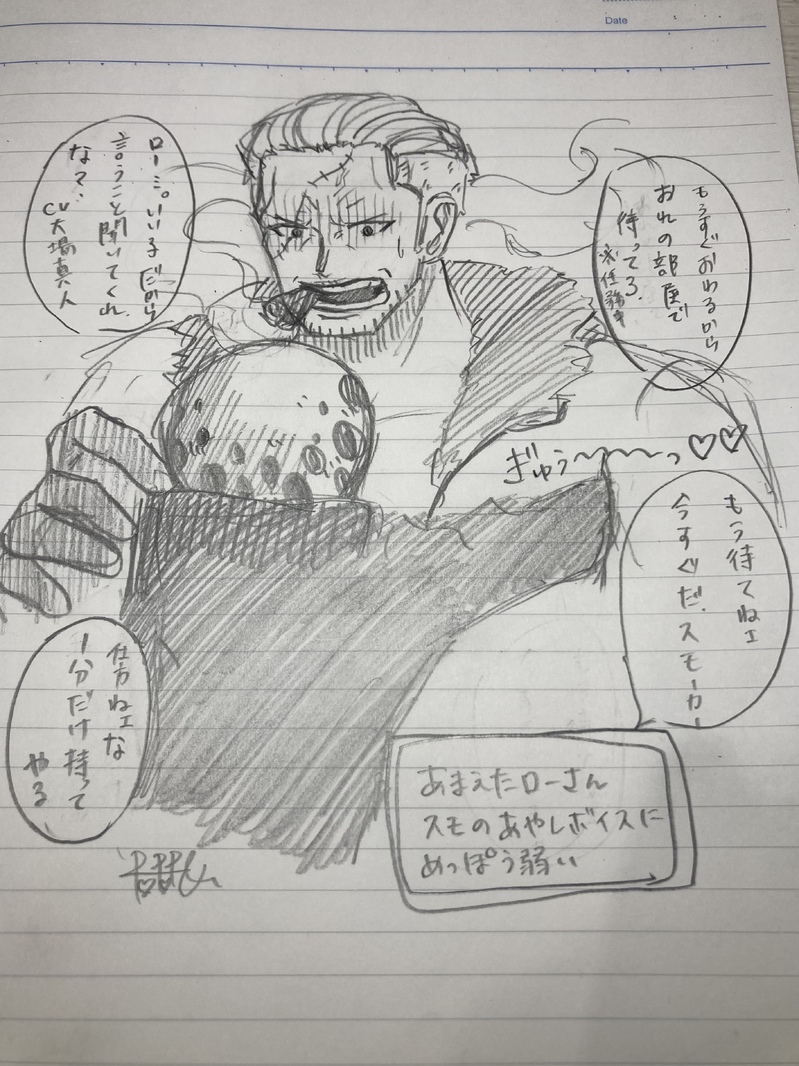 Date
もうすぐおわるから
おれの部屋で
待ってろ。
※任務中
ロー…。いい子だから
言うこと聞いてくれ
なァ…
CV大場真人
ぎゅう〜〜〜っ♡♡
もう待てねェ
今すぐだ、スモーカー
仕方ねェな
1分だけ待って
やる
あまえたローさん
スモのあやしボイスに
めっぽう弱い